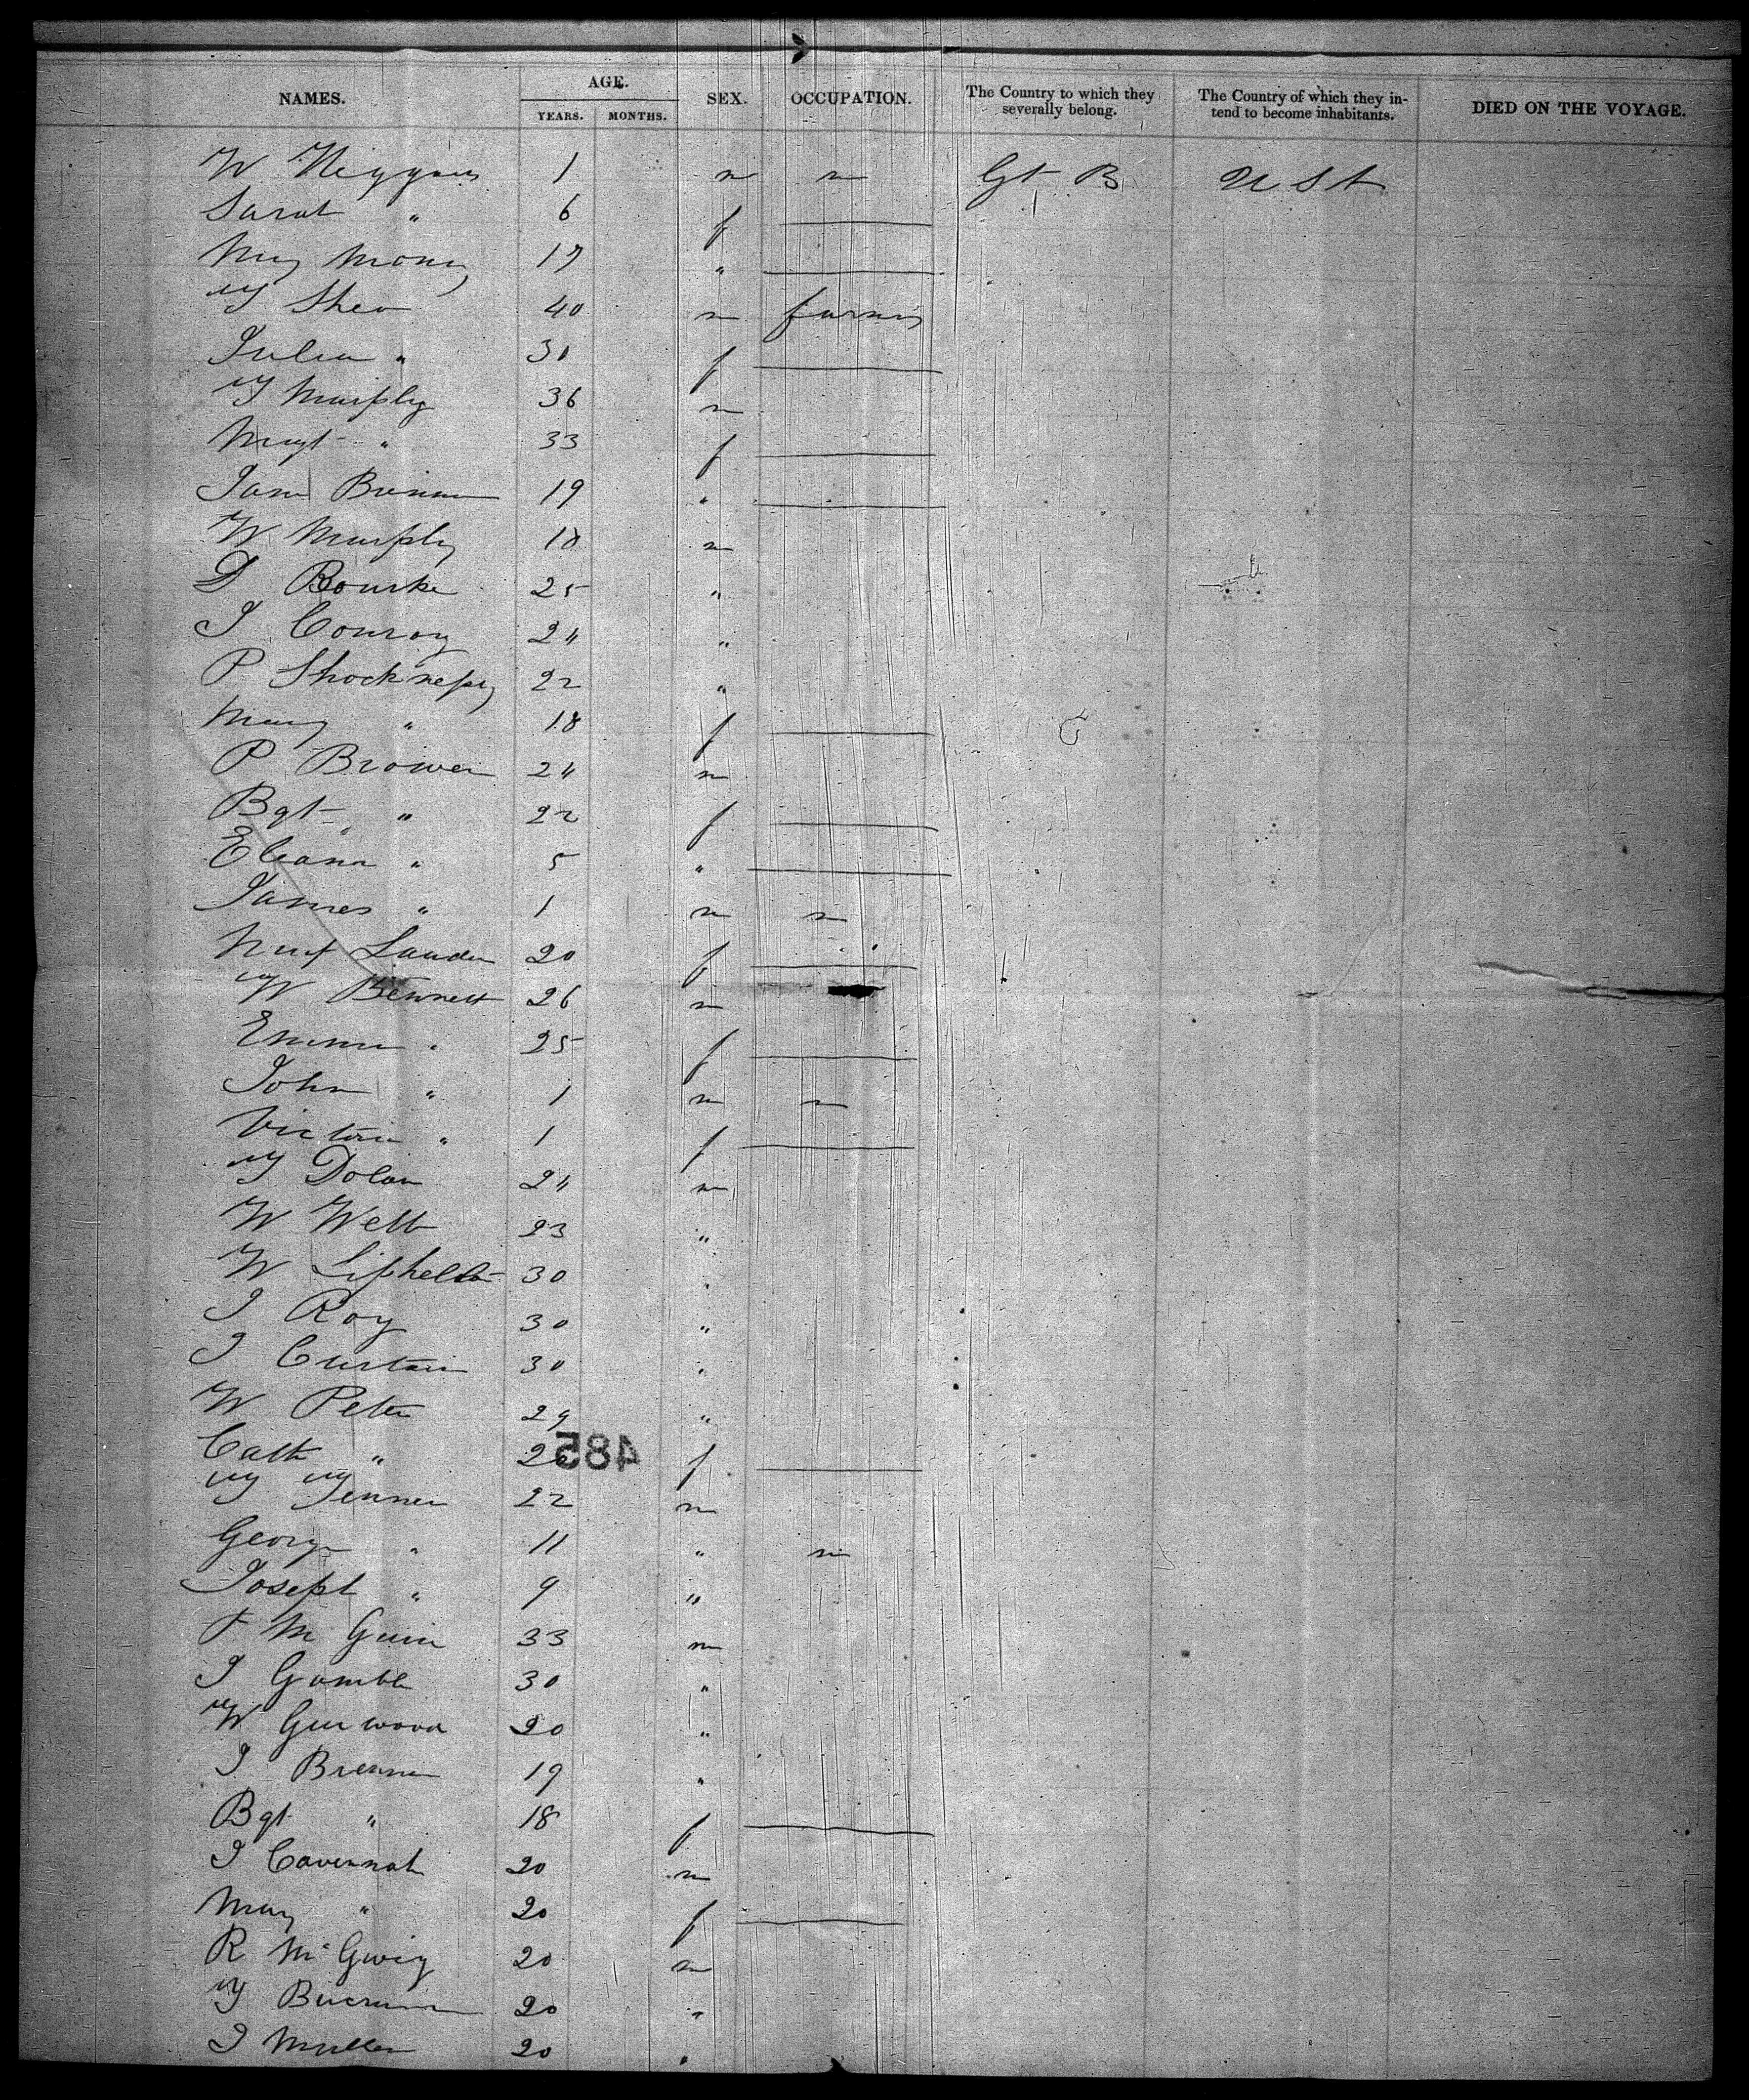 NAMES. AGE. YEARS. MONTHS. SEX. OCCUPATION. The Country to which they severally belong. The Country of which they intend to become inhabitants. DIED ON THE VOYAGE.
W Higgins 1 m m Gt B U St
Sarah " 6 f
17 "
T Shea 40 m farmer
Julia " 30 f
T Murphy 36 m
Magt " 33 f
Jane Brennan 19 "
W Murphy 18 m
D Rourke 25 "
J Conroy 24 "
P 22 "
Mary " 18 f
P Brower 24 m
Bgt " 22 f
Eleanor " 5 "
James " 1 m m
20 f
W Bennett 26 m
Emma " 25 f
John " 1 m m
Victoria " 1 f
T Dolan 24 m
W Webb 23 "
W 30 "
J Roy 30 "
J Curtain 30 "
W Peter 29 "
Cath " f
485
T Jenner 22 m
George " 11 " m
Joseph " 9 "
33 m
J Gamble 30 "
W 20 "
J Brennan 19 "
Bgt " 18 f
J Cavennah 20 m
Mary " 20 f
R 20 m
T 20 "
J Mullen 20 "